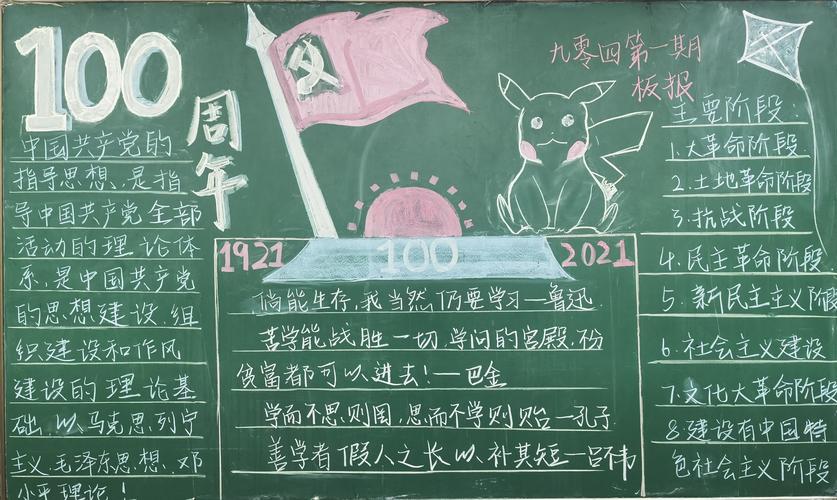 100
周年
九零四第一期
板报
中国共产党的
指导思想,是指
导中国共产党全部
活动的理论体
系,是中国共产党
的思想建设、组
织建设和作风
建设的理论基
础,以马克思列宁
主义、毛泽东思想、邓
小平理论!
1921 100 2021
倘能生存,我当然仍要学习—鲁迅
苦学能战胜一切,学问的宫殿,不分
贫富都可以进去!—巴金
学而不思则罔,思而不学则殆—孔子
善学者假人之长以补其短—吕不韦
主要阶段:
1.大革命阶段
2.土地革命阶段
3.抗战阶段
4.民主革命阶段
5.新民主主义阶段
6.社会主义建设
7.文化大革命阶段
8.建设有中国特
色社会主义阶段